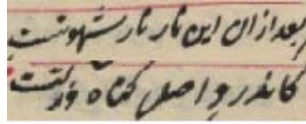 بعد ازان این نار نار شهوتست
کاندرو اصل گناه و زلتست